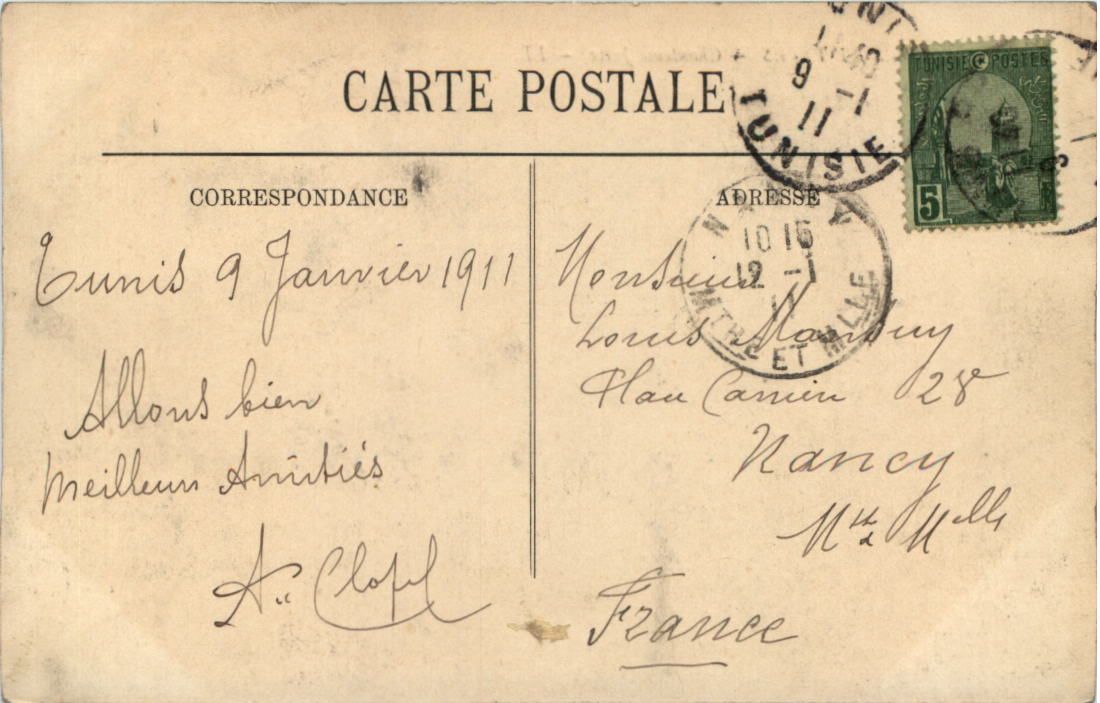 CARTE POSTALE
TUNISIE
9 -1
11
TUNISIE POSTES
5
CORRESPONDANCE
ADRESSE
10 15
12 -1
11
MTHE ET MLLE
Tunis 9 Janvier 1911
Allons bien
Meilleurs Amitiés
Monsieur
Louis
28
Nancy
Mthe & Mlle
France